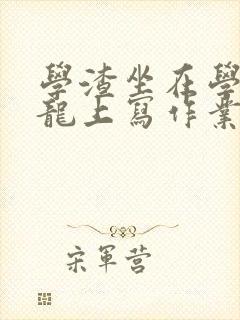 學渣坐在學
龍上寫作業
宋軍营